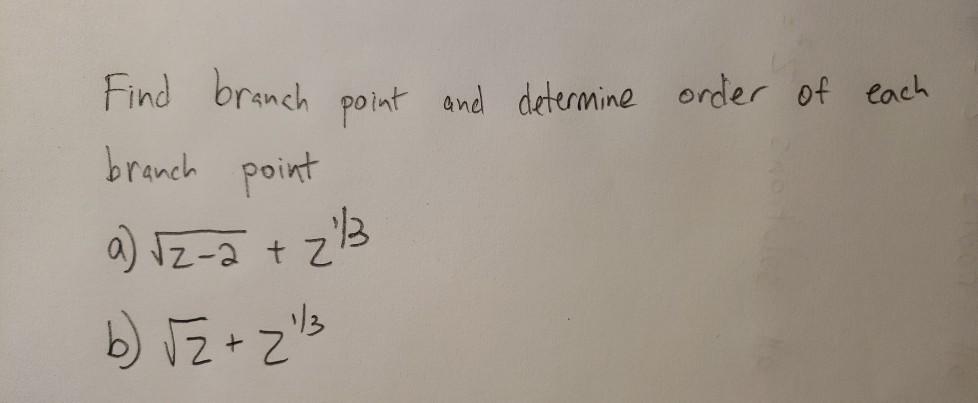 Find branch point and determine order of each
branch point
a) √z-2 + z^1/3
b) √z + z^1/3